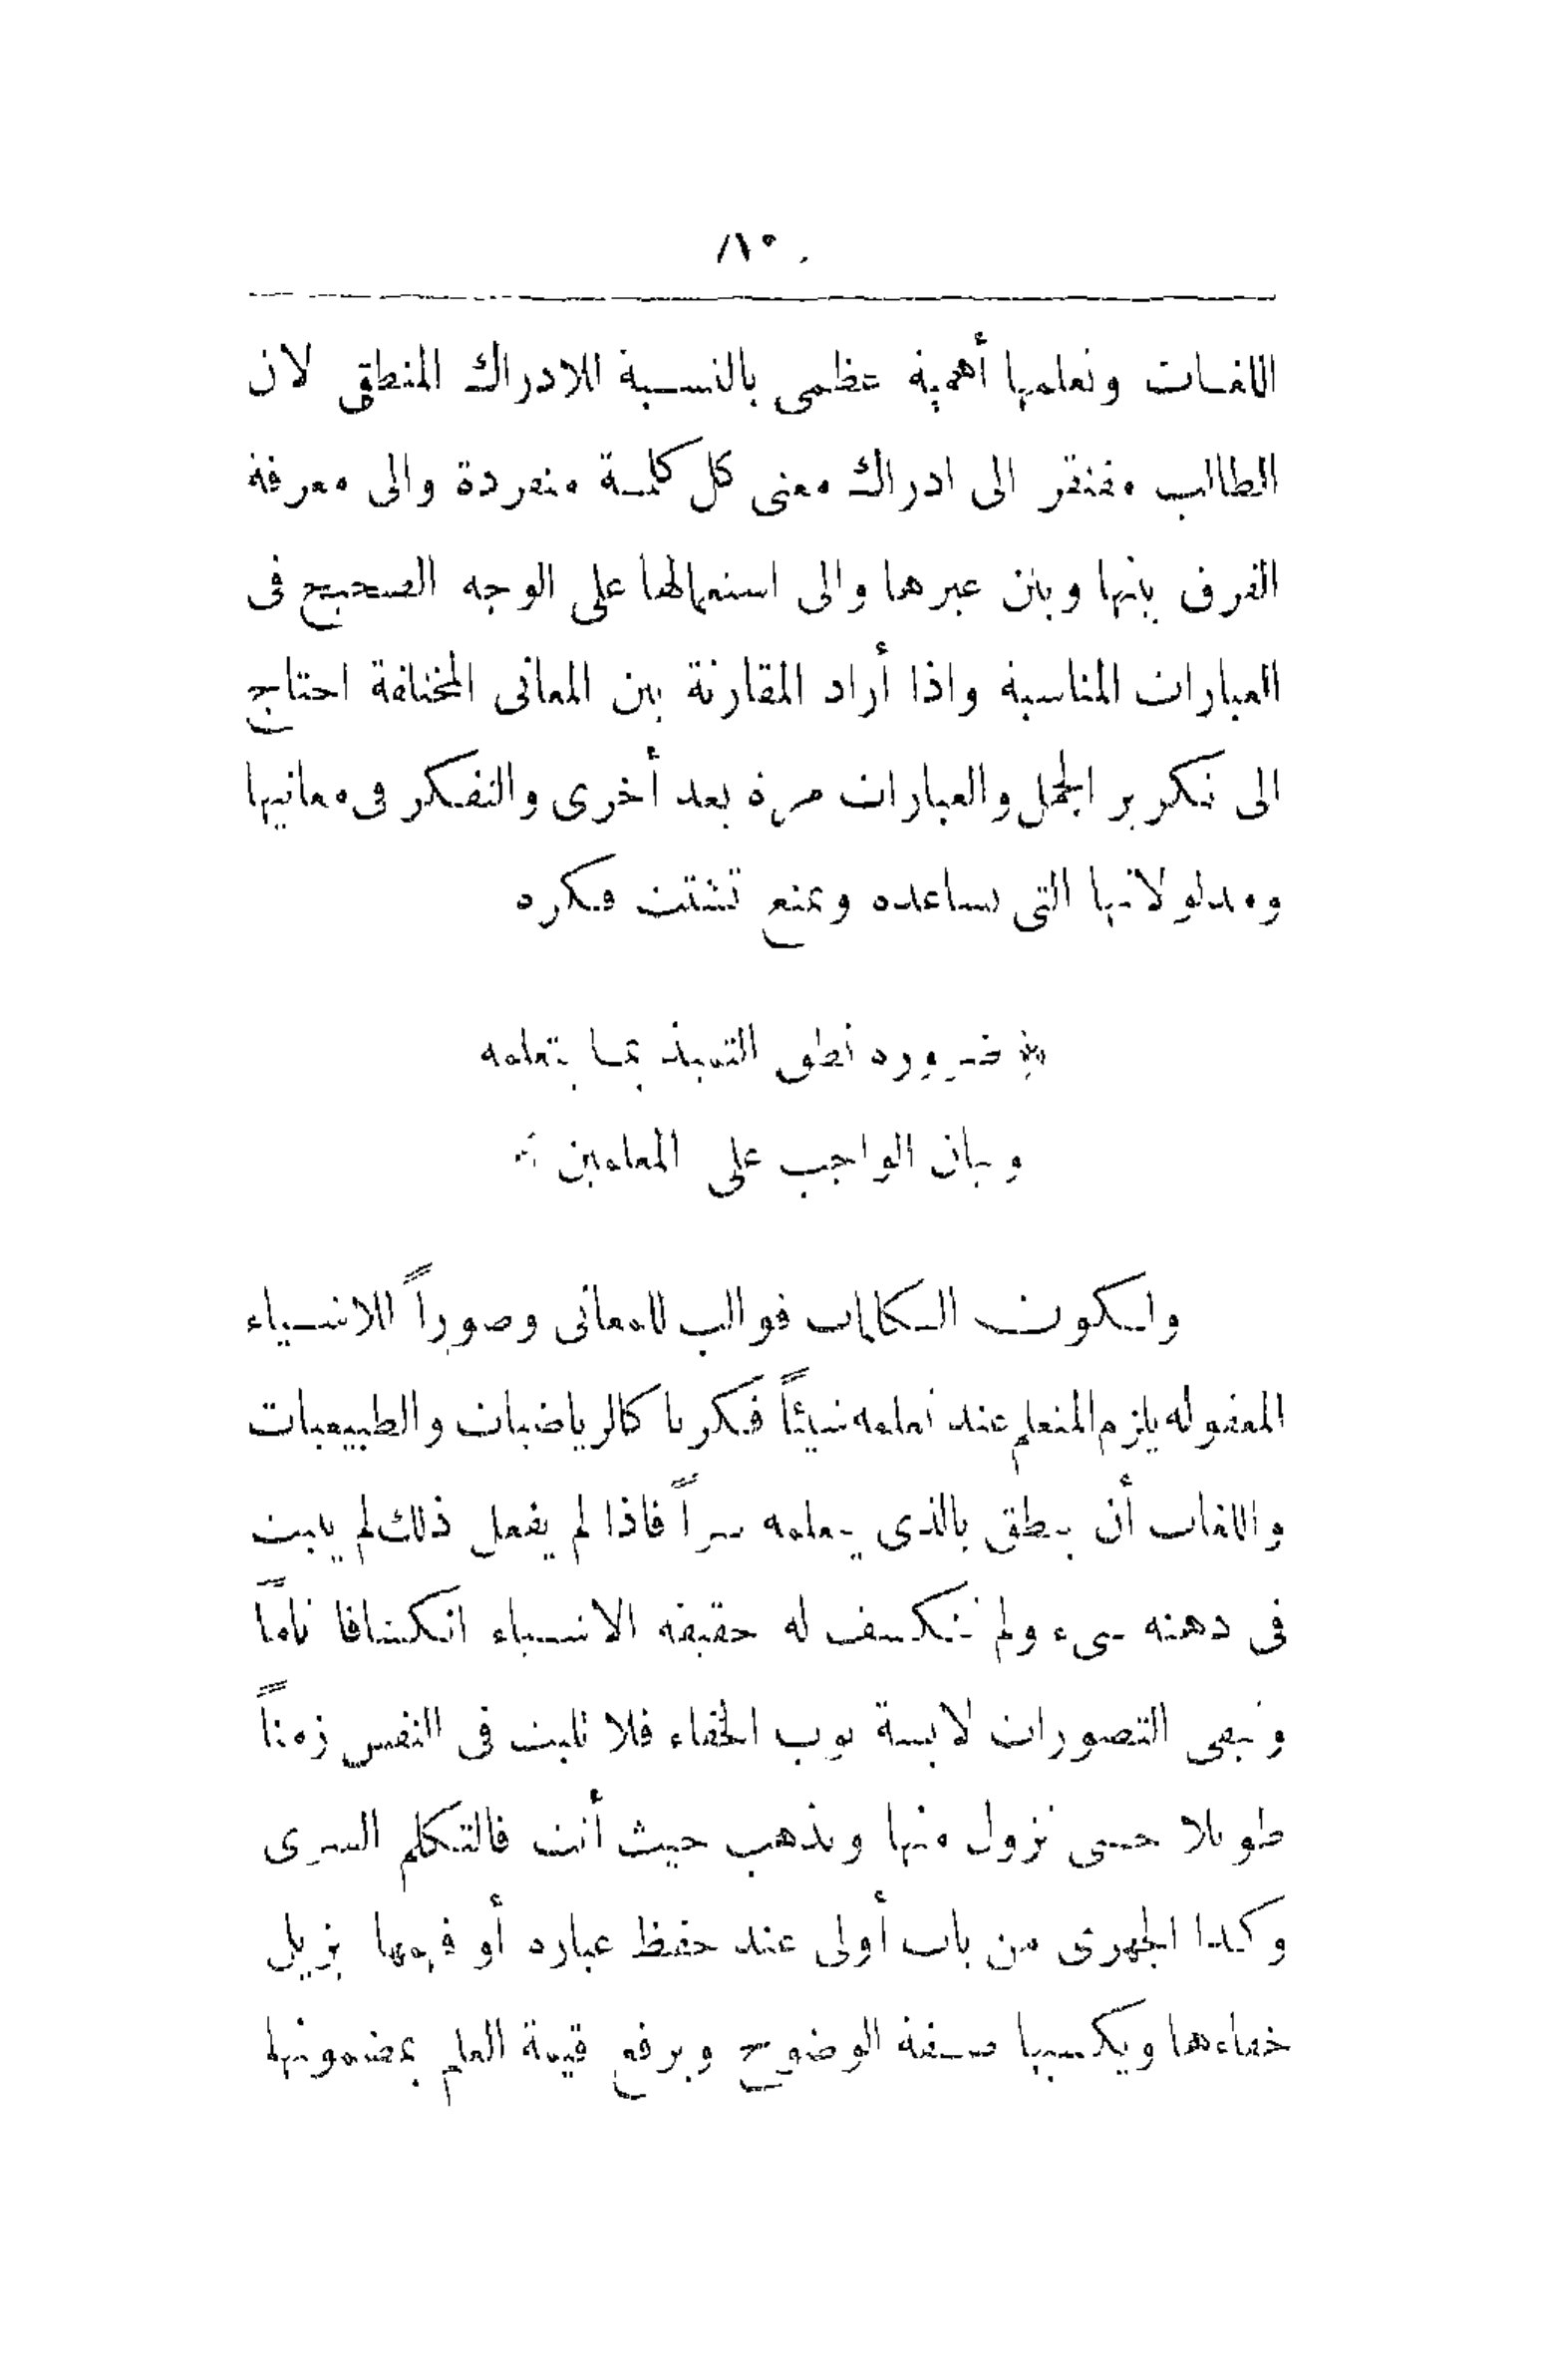 اللغات وتعلمها أهمية عظمى بالنسبة للادراك المنطقى لان
الطالب مفتقر الى ادراك معنى كل كلمة منفردة والى معرفة
الفرق بينها وبين غيرها والى استعمالها على الوجه الصحيح فى
العبارات المناسبة واذا أراد المقارنة بين المعانى المختلفة احتاج
الى تكرير الجمل والعبارات مرة بعد أخرى والتفكر فى معانيها
ومدلولاتها التى تساعده وتمنع تشتت فكره
ضرورة نطق التلميذ بما يتعلمه
وبيان الواجب على المعلمين
ولكون الكلمات قوالب للمعانى وصوراً للاشياء
المعقولة يلزم المتعلم عند تعلمه شيئاً فكريا كالرياضيات والطبيعيات
واللغات أن ينطق بالذى يتعلمه سراً فاذا لم يفعل ذلك لم يثبت
فى ذهنه شىء ولم تنكشف له حقيقة الاشياء انكشافا تاماً
وتبقى التصورات لابسة ثوب الخفاء فلا تلبث فى النفس زمناً
طويلا حتى تزول منها وتذهب حيث أتت فالتكلم السرى
وكذا الجهرى من باب أولى عند حفظ عبارة أو فهمها يزيل
خفاءها ويكسبها صفة الوضوح ويرفع قيمة العلم بمضمونها